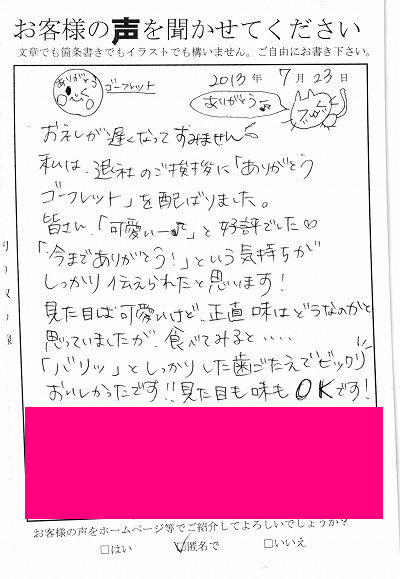 お客様の声を聞かせてください
文章でも箇条書きでもイラストでも構いません。ご自由にお書き下さい。
ありがとう
ゴーフレット
2013年 7月23日
ありがとう♪
お礼が遅くなってすみません
私は、退社のご挨拶に「ありがとう
ゴーフレット」を配ばりました。
皆さん、「可愛いー♪」と好評でした♡
「今までありがとう!」という気持ちが
しっかり伝えられたと思います!
見た目は可愛いけど、正直味はどうなのかと
思っていましたが、食べてみると・・・・
「バリッ」としっかりした歯ごたえでビックリ
おいしかったです!!見た目も味もOKです!
お客様の声をホームページ等でご紹介してよろしいでしょうか?
□はい ☑匿名で □いいえ